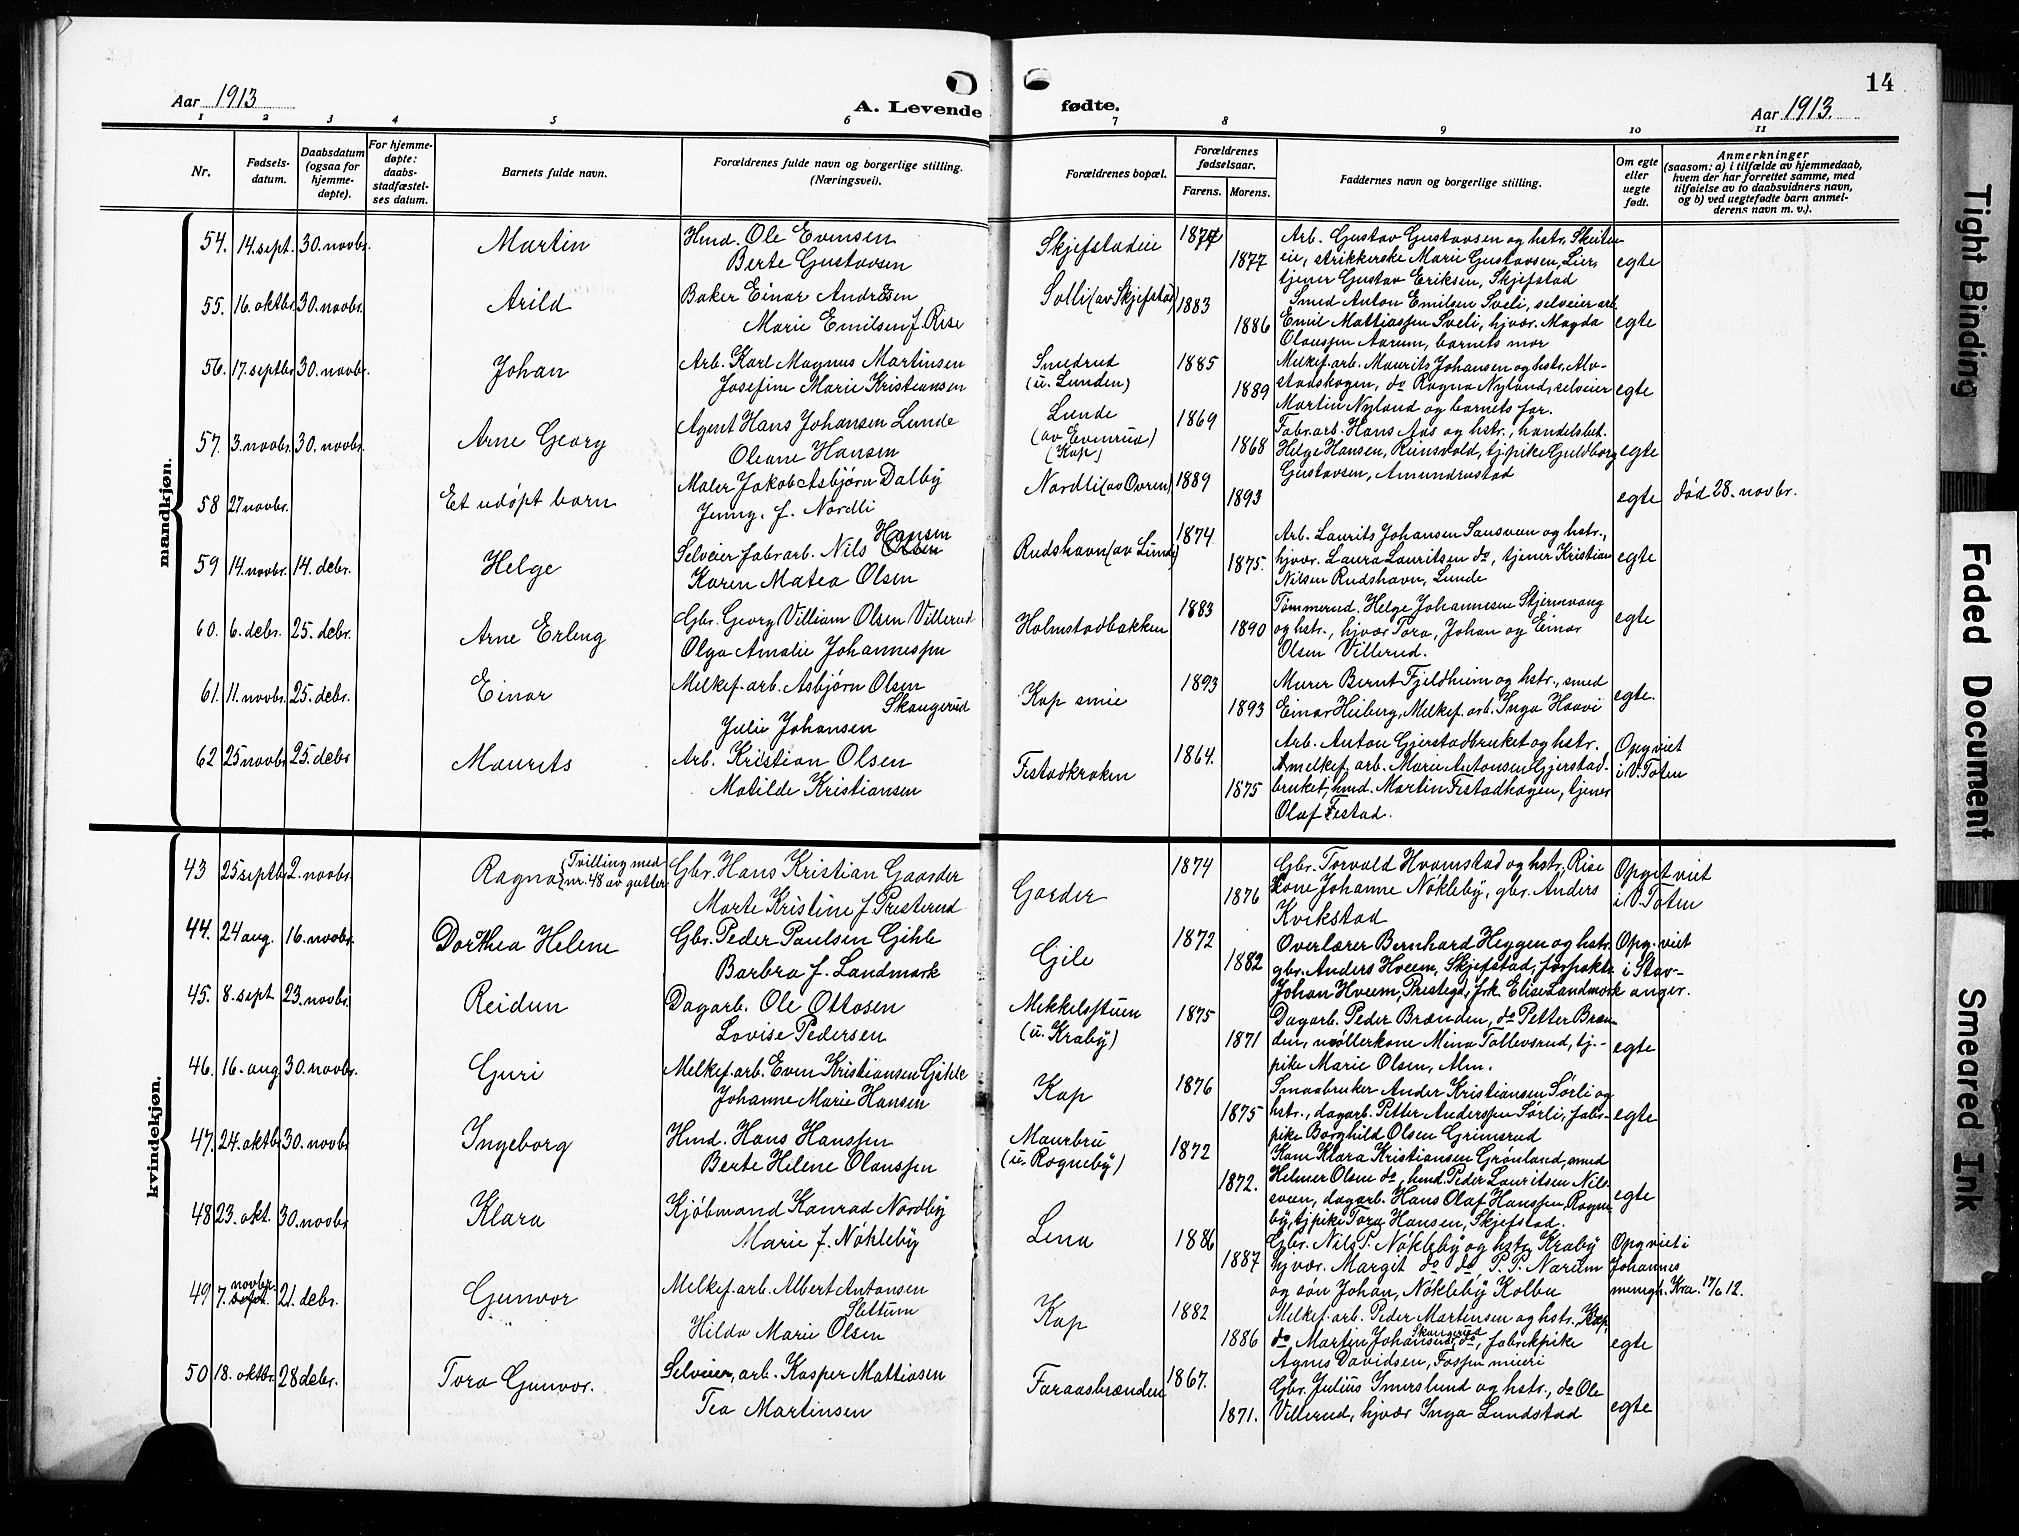 14
Aar 1913
A. Levende fødte.
Aar 1913.
1 2 3 4 5 6 7 8 9 10 11
Nr.
Fødsels-
datum.
Daabsdatum
(ogsaa for
hjemme-
døpte).
For hjemme-
døpte:
daabs-
stadfæstel-
ses datum.
Barnets fulde navn.
Forældrenes fulde navn og borgerlige stilling.
(Næringsvei).
Forældrenes bopæl.
Forældrenes
fødselsaar.
Farens. Morens.
Faddernes navn og borgerlige stilling.
Om egte
eller
uegte
født.
Anmerkninger
(saasom: a) i tilfælde av hjemmedaab,
hvem der har forrettet samme, med
tilføielse av to daabsvidners navn,
og b) ved uegtefødte barn anmel-
derens navn m. v.).
mandkjøn.
54. 14. sept. 30. novbr. Martin
Hmd. Ole Evensen
Berte Gustavsen
Skjefstadeie 1874 1877
Arb. Gustav Gustavsen og hstr. Skuten-
eie, strikkerske Marie Gustavsen, Lier,
tjener Gustav Eriksen, Skjefstad
egte
55. 16. oktbr. 30. novbr. Arild
Baker Einar Andresen
Marie Emilsen f. Rise
Solli (av Skjefstad) 1883 1886
Smed Anton Emilsen Sveli, selveier arb.
Emil Mattiassen Sveli, hjvær. Magda
Olaussen Aarum, barnets mor
egte
56. 17. septbr. 30. novbr. Johan
Arb. Karl Magnus Martinsen
Josefine Marie Kristiansen
Smedrud
(u. Lunden)
1885 1889
Melkef. arb. Maurits Johansen og hstr. Alv-
stadskogen, do Ragna Nyland, selveier
Martin Nyland og barnets far.
egte
57. 3. novbr. 30. novbr. Arne Georg
Agent Hans Johansen Lunde
Oleane Hansen
Lunde
(av Evenrud)
(Kap)
1869 1868
Fabr. arb. Hans Aas og hstr., handelsbet.
Helge Hansen, Reinsvold, tj. pike Guldborg
Gustavsen, Amundrustad
egte
58 27 novbr. Et udøpt barn
Maler Jakob Asbjørn Dalby
Jenny. f. Nordli
Nordli (av Ovren) 1889 1893
egte død 28. novbr.
59 14. novbr. 14. debr. Helge
Selveier fabr arb. Nils Olsen Hansen
Karen Matea Olsen
Rudshavn (av Lunde) 1874 1875.
Arb. Laurits Johansen Sansveen og hstr.,
hjvær. Laura Lauritsen do, tjener Kristian
Nilsen Rudshavn, Lunde
egte
60. 6. debr. 25. debr. Arne Erling
Gbr. Georg Villiam Olsen Villerud
Olga Amalie Johannessen
Holmstadbakken 1883 1890
Tømmermd. Helge Johannesen Stjernvang
og hstr., hjvær Tora, Johan og Einar
Olsen Villerud.
egte
61. 11. novbr. 25. debr. Einar
Melkef. arb. Asbjørn Olsen
Skaugerud
Julie Johansen
Kap smie 1893 1893
Murer Bernt Fjeldheim og hstr., smed
Einar Heiberg, Melkef. arb. Inga Haavi
egte.
62 25 novbr. 25. debr Maurits
Arb. Kristian Olsen
Matilde Kristiansen
Festadkroken 1864. 1875
Arb. Anton Gjerstadbruket og hstr.
melkef. arb. Marie Antonsen Gjerstad-
bruket, hmd. Martin Festadhagen, tjener
Olaf Festad.
Opg viet
i V. Toten
kvindekjøn.
43 25 septb. 2. novbr. Ragna {Tvilling med
nr. 48 av gutter
Gbr. Hans Kristian Gaarder
Marte Kristine f. Presterud
Gaarder 1874 1876
Gbr. Torvald Hvamstad og hstr. Rise
Kone Johanne Nøkleby, gbr. Anders
Kvikstad
Opgit viet
i V. Toten
44. 24 aug. 16. novbr. Dorthea Helene
Gbr. Peder Paulsen Gihle
Barbra f. Landmark
Gile 1872 1882
Overlærer Bernhard Heggen og hstr.
gbr. Anders Hveem, Skjefstad, forpakter
Johan Hveem, Prestegd., frk. Elise Landmark
Opg. viet
i Stav-
anger.
45. 8. sept 23. novbr. Reidun
Dagarb. Ole Ottosen
Lovise Pedersen
Mikkelsstuen
(u. Kraby)
1875 1871
Dagarb. Peder Brænden, do Petter Bræn-
den, møllerkone Mina Tollevsrud, tj.-
pike Marie Olsen, Alm.
egte
46. 16. aug. 30. novbr. Guri
Melkef. arb. Even Kristiansen Gihle
Johanne Marie Hansen
Kap 1876 1875
Smaabruker Ander Kristiansen Sørli og
hstr., dagarb. Petter Anderssen Sørli, fabr-
pike Borghild Olsen Grimsrud
egte
47. 24. oktb. 30. novbr Ingeborg
Hmd. Hans Hanssen
Berte Helene Olaussen
Maurbru
(u. Rogneby)
1872 1872.
Kone Klara Kristiansen Grønland, smed
Helmer Olsen do, hmd. Peder Lauritsen Nils-
sveen, dagarb. Hans Olaf Hanssen, Rogne-
by, tj. pike Tora Hansen, Skjefstad.
egte
48 23. okt. 30. novbr Klara
Kjøbmand Konrad Nordby
Marie f. Nøkleby
Lena 1886 1887
Gbr. Nils P. Nøkleby og hstr. Kraby
hjvær. Margit do do P. P. Narum
og søn Johan, Nøkleby Kolbu
Opg viet i
Johannes
menigh. Kra. 17/6 12.
49 7. sept. novbr. 21. debr. Gunvor
Melkef. arb. Albert Antonsen
Slettum
Hilda Marie Olsen
Kap 1882 1886
Melkef. arb. Peder Martensen og hstr. Kap,
do Martin Johansen Skaugerud do, fabrikpike
Agnes Davidsen, Fossen mueri
egte
50 18. oktbr. 28 debr. Tora Gunvor.
Selveier, arb. Kasper Mattiasen
Tea Martinsen
Faraasbrænden 1867. 1871.
Gbr. Julius Smerslund og hstr., do Ole
Villerud, hjvær Inga Lundstad
egte
Tight Binding
Faded Document
Smeared Ink